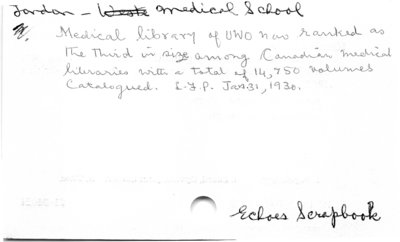 London - Medical School
Medical library of UWO now ranked as
the third in size among Canadian medical
libraries with a total of 14,750 volumes
Catalogued. L.F.P. Jan. 31, 1930.
Echoes Scrapbook